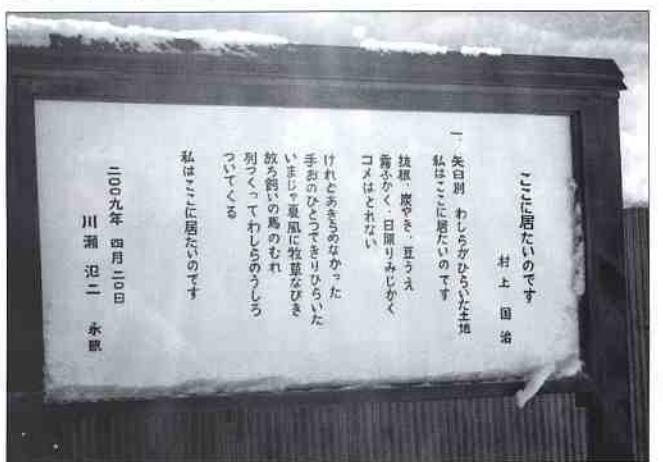 ここに居たいのです
村上 国治
一、矢臼別 わしらがひらいた土地
私はここに居たいのです
抜根・炭やき・豆うえ
霧ふかく・日照りみじかく
コメはとれない
けれどあきらめなかった
手おのひとつできりひらいた
いまじゃ夏風に牧草なびき
放ち飼いの馬のむれ
列つくってわしらのうしろ
ついてくる
私はここに居たいのです
二〇〇九年 四月二〇日
川瀬 氾二 永眠